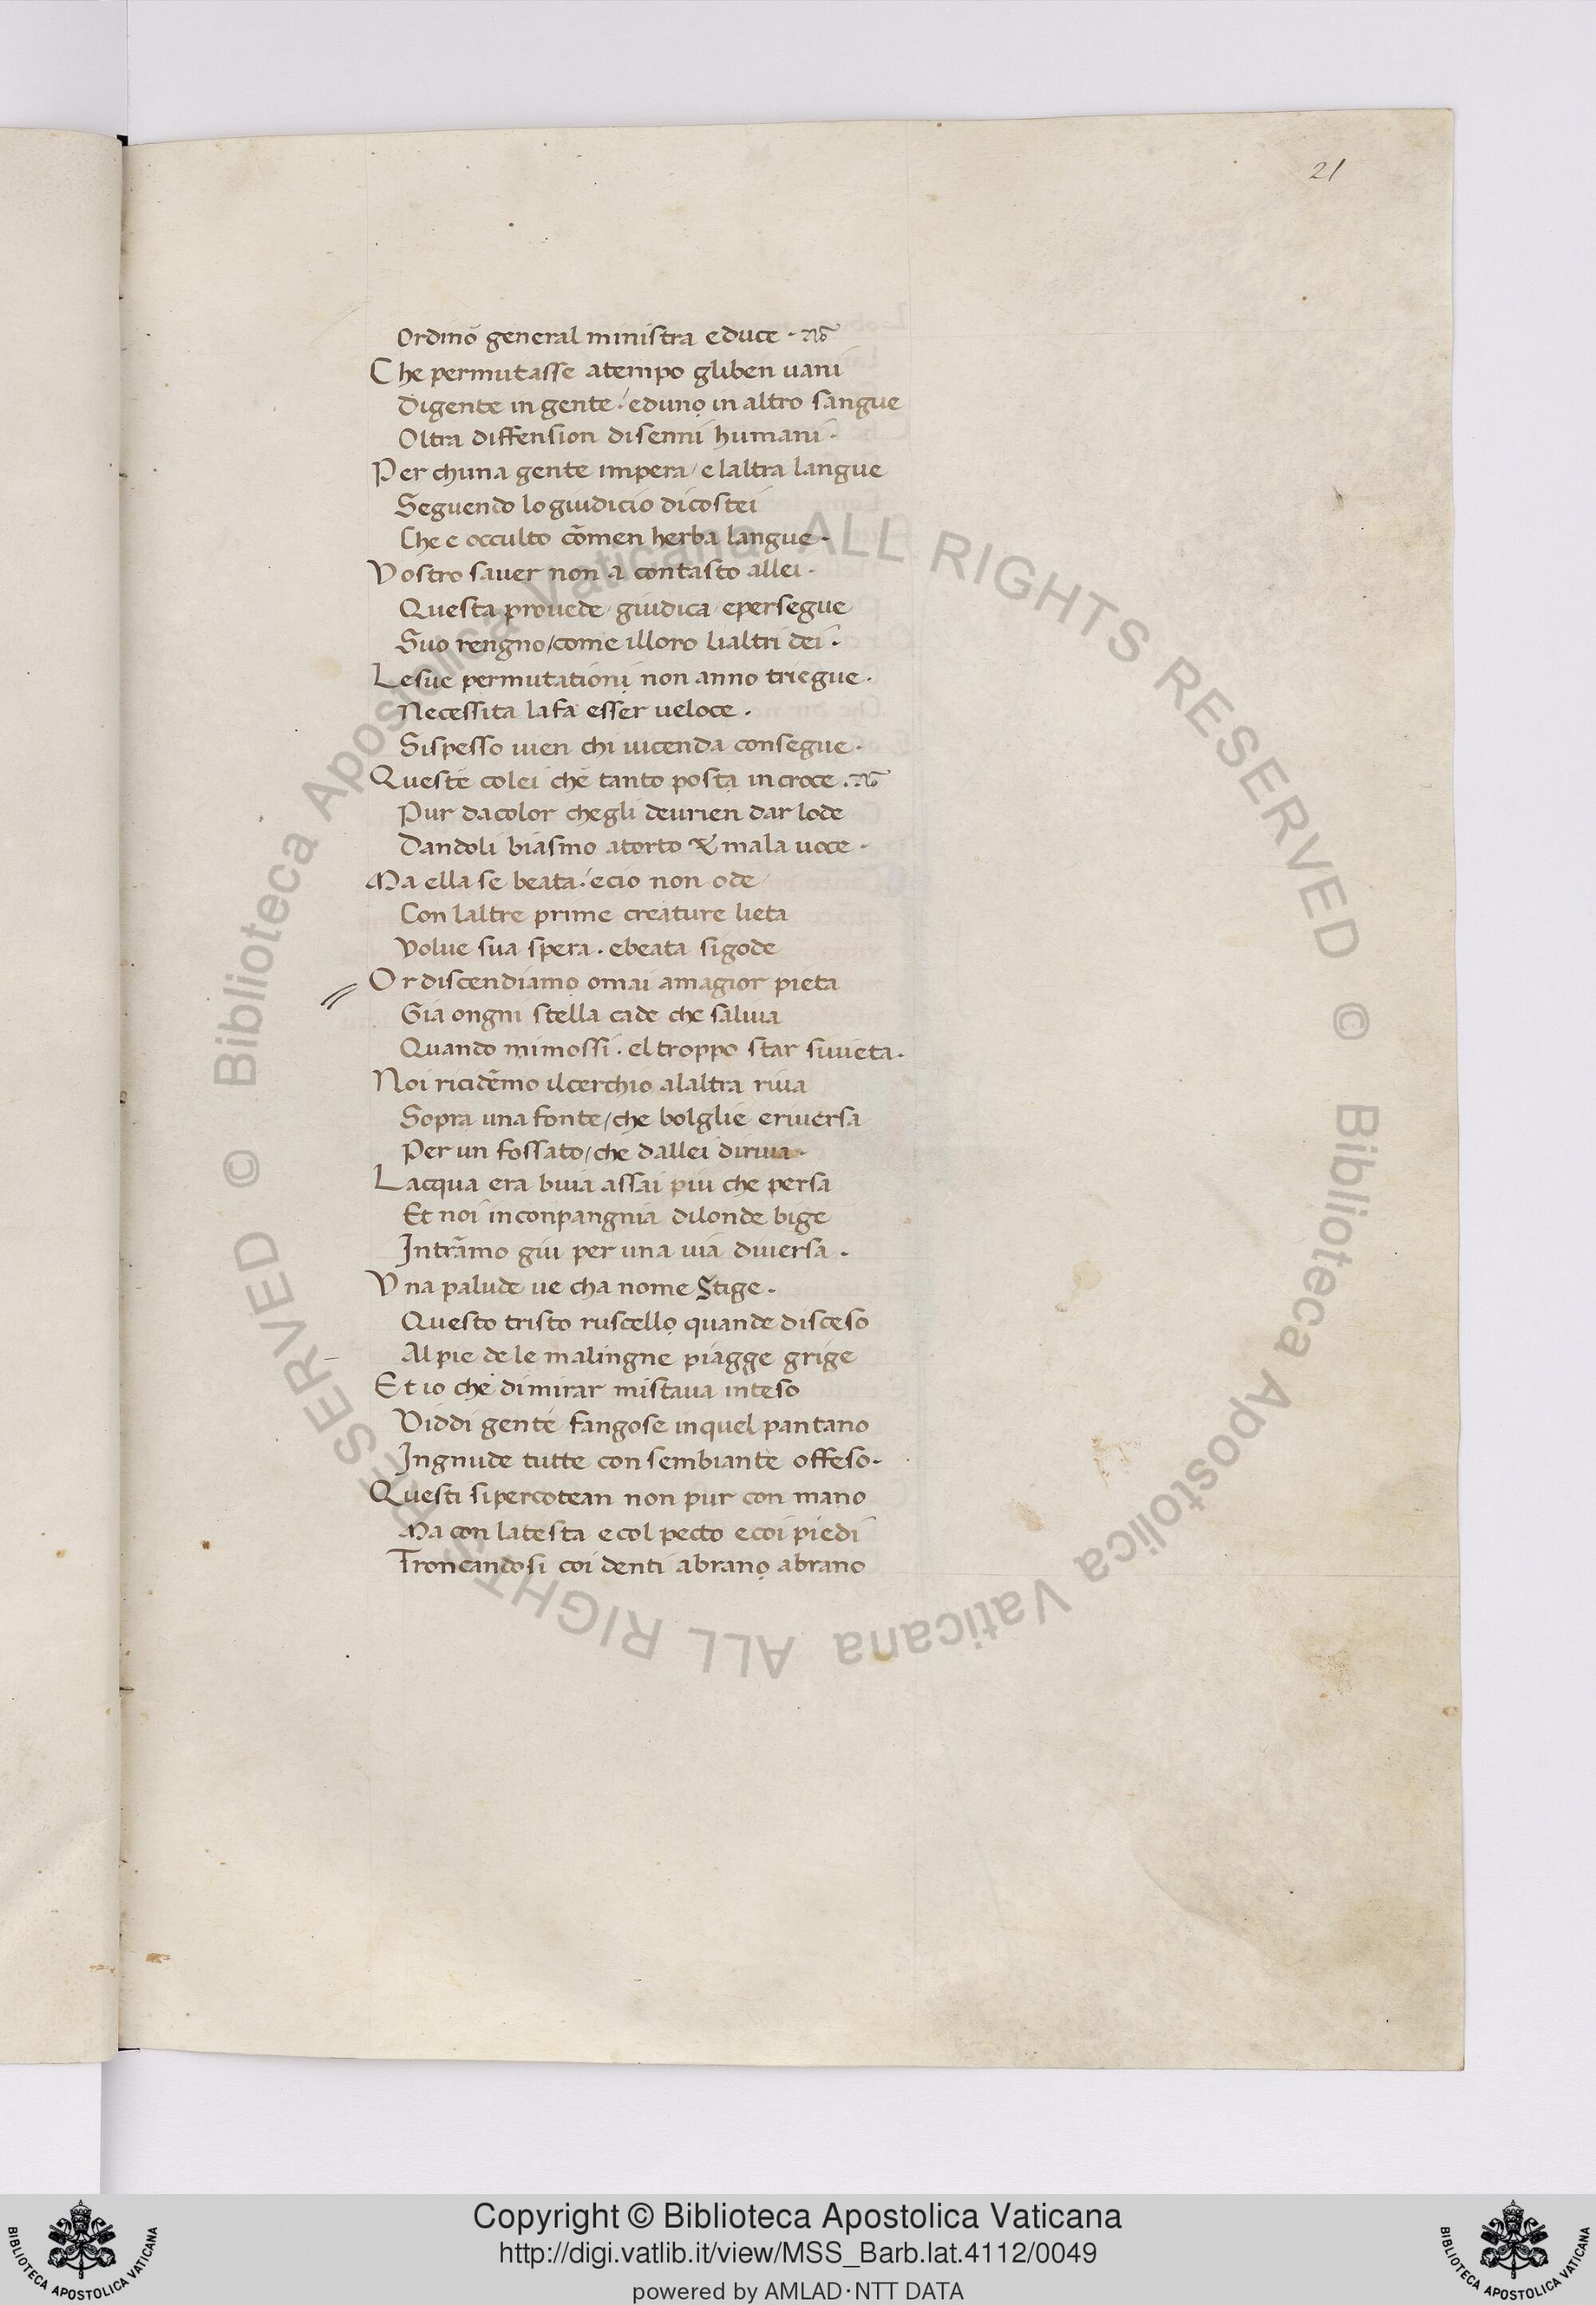 21
Ordinò general ministra educe ·
Che permutasse atempo gliben uani
Digente in gente · eduno in altro sangue
Oltra diffension disenni humani ·
Per chuna gente impera / e laltra langue
Seguendo logiudicio dicostei
Che e occulto cōmen herba langue ·
Vostro sauer non a contasto allei ·
Questa prouede / giudica / epersegue
Suo rengno / come illoro lialtri dei ·
Lesue permutationi non anno triegue ·
Necessita lafa esser ueloce ·
Sispesso uien chi uicenda consegue ·
Queste colei che tanto posta incroce ·
Pur dacolor chegli deurien dar lode
Dandoli biasmo atorto & mala uoce ·
Ma ella se beata · ecio non ode
Con laltre prime creature lieta
Volue sua spera · ebeata sigode
Or discendiamo omai amagior pieta
Gia ongni stella cade che saliuia
Quando mimossi · el troppo star siuieta ·
Noi ricidēmo ilcerchio alaltra riua
Sopra una fonte / che bolglie eriuersa
Per un fossato / che dallei diriua ·
Lacqua era buia assai piu che persa
Et noi inconpangnia dilonde bige
Intrāmo giu per una uia diuersa ·
Vna palude ue cha nome Stige ·
Questo tristo ruscello quande disceso
Al pie de le malingne piagge grige
Et io che dimirar mistaua inteso
Viddi gente fangose inquel pantano
Ingnude tutte con sembiante offeso ·
Questi sipercotean non pur con mano
Ma con latesta ecol pecto ecoi piedi
Troncandosi coi denti abrano abrano
© Biblioteca Apostolica Vaticana ALL RIGHTS RESERVED © Biblioteca Apostolica Vaticana ALL RIGHTS RESERVED
Copyright © Biblioteca Apostolica Vaticana
http://digi.vatlib.it/view/MSS_Barb.lat.4112/0049
powered by AMLAD·NTT DATA
BIBLIOTECA APOSTOLICA VATICANA
BIBLIOTECA APOSTOLICA VATICANA